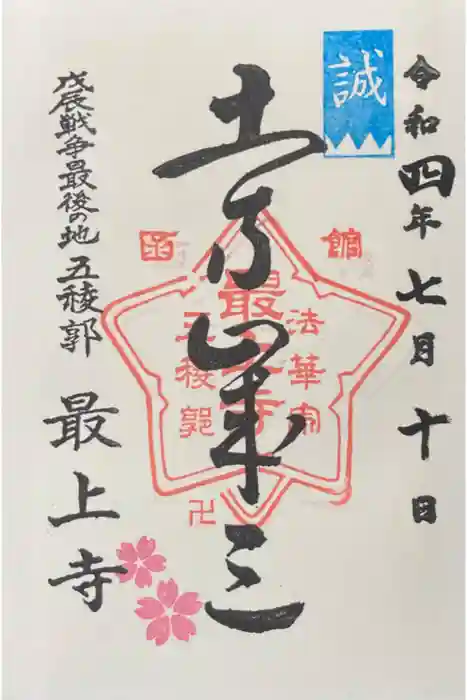 令和四年七月十日
誠
土方歳三
函館
法華宗
最上寺
五稜郭
卍
戊辰戦争最後の地 五稜郭 最上寺